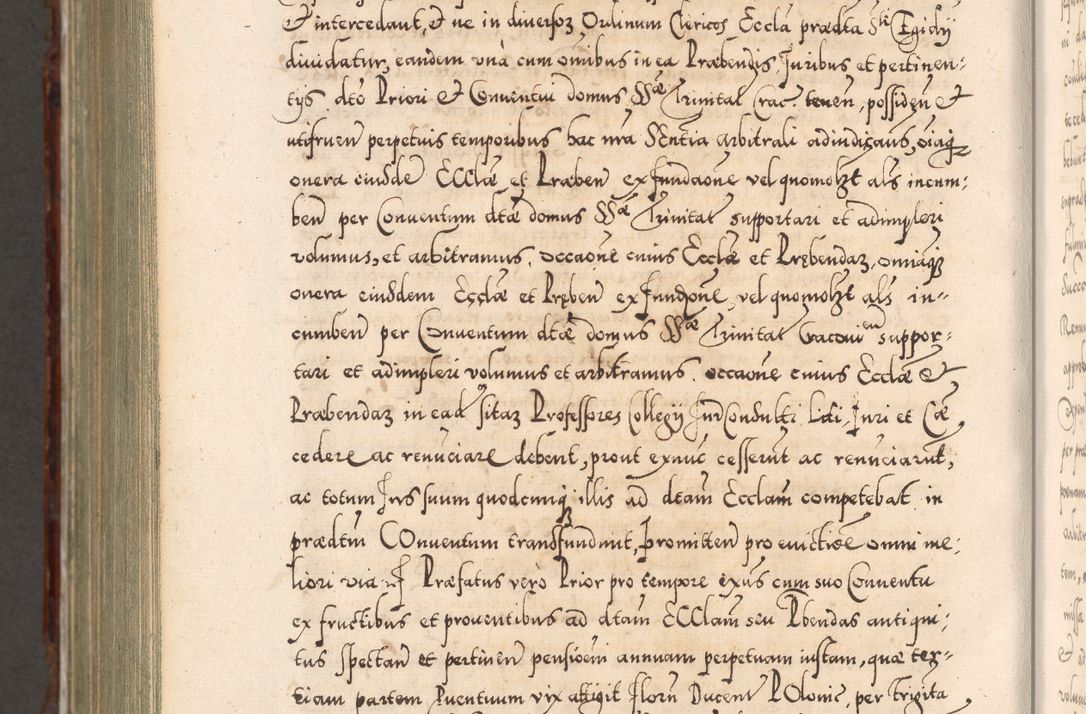 & intercedant, & ne in diversoz Ordinum Clericos Eccla prædta Sti Egidij
dividatur, eandem unà cum omnibus in ea Præbendis, Iuribus et pertinen-
tijs dto Priori & Conventui domus SSæ Trinitat Crac. tenen, possiden &
utifruen perpetuis temporibus hac nra Sentia arbitrali adiudicans, oiaq
onera eiusde Ecclæ et Præben ex fundaone vel quomolzt als incum-
ben per Conventum dtæ domus SSæ Trinitat supportari et adimpleri
volumus, et arbitramus, occaone cuius Ecclæ et Præbendaz, omniaqz
onera eiusdem Ecclæ et Præben ex fundone, vel quomolzt als in-
cumben per Conventum dtæ domus SSæ Trinitat Cracovien suppor-
tari et adimpleri volumus et arbitramus, occaone cuius Ecclæ &
Præbendaz in ead sitaz Professores Collegij Iur Consulti liti, Iuri et Cæ
cedere ac renunciare debent, prout exnuc cesserut ac renuciarut,
ac totum Ius suum quodcunqz illis ad dtam Ecclam competebat in
prædtm Conventum transfundunt, promitten pro evictione omni me-
liori via Præfatus verò Prior pro tempore exns cum suo Conventu
ex fructibus et proventibus ad dtam Ecclam seu Pbendas antiqui-
tus spectan et pertinen pensionem annuam perpetuam iustam, quæ ter-
tiam partem Proventuum vix attigit floren Ducent Polonic, per Trigita